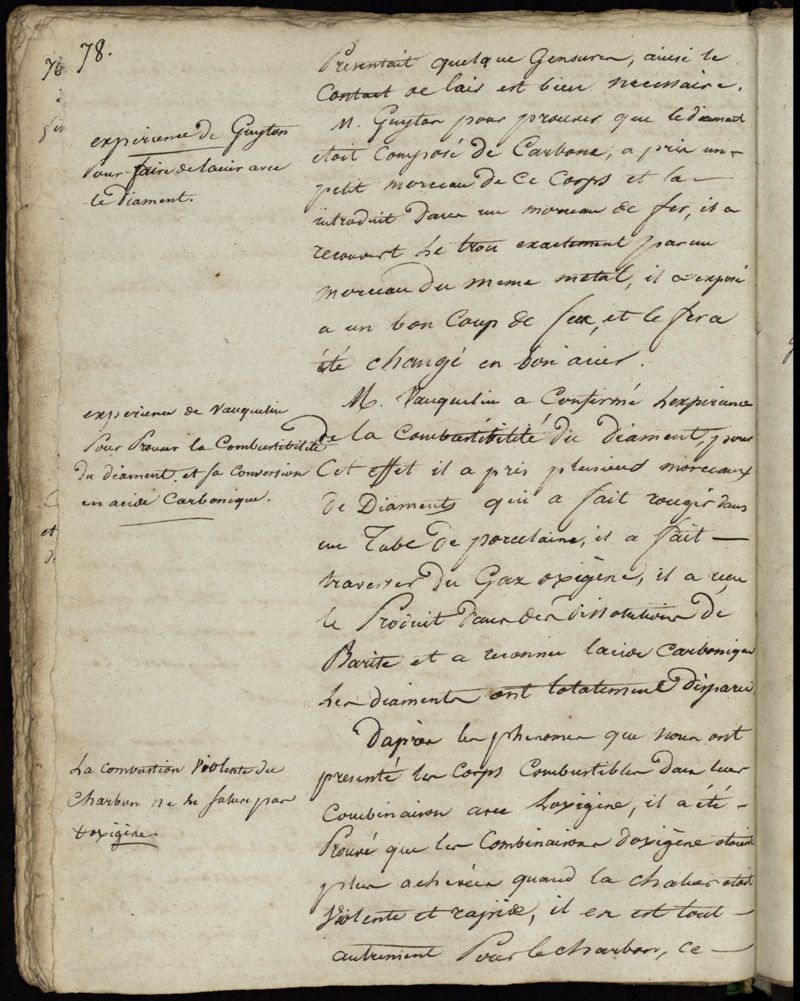 78.
Presentait quelque Gersures, ainsi le
Contact de lair est bien necessaire.
experience de Guyton
Pour faire de lacier avec
le Diament.
M. Guyton pour prouver que le diament
etoit Composé de Carbone, a pris un
petit morceau de Ce Corps et la
introduit dans un morceau de fer, il a
recouvert Le trou exactement par un
morceau du meme metal, il a exposé
a un bon Coup de feu, et le fer a
été changé en bon acier.
experience de Vauquelin
Pour Prouver la Combustibilité
du diament et sa Conversion
en acide Carbonique.
M. Vauquelin a Confirmé Lexperience
de la Combustibilité du Diament, pour
Cet effet il a pris plusieurs morceaux
de Diaments qui a fait rougir dans
un Tube de porcelaine, il a fait
traverser du Gaz oxigène, il a reçu
le Produit dans des dissolutions de
Barite et a reconnu lacide Carbonique
Les diaments ont totatement disparu
La combustion Violente du
Charbon ne le sature pas
doxigène.
Dapres les phenomen que nous ont
presenté les Corps Combustibles dans leur
Combinaison avec Loxigène, il a été
Prouvé que les Combinaisons doxigène etoient
plus achevées quand la chaleur etoit
Violente et rapide, il en est tout
autrement Pour le charbon, ce